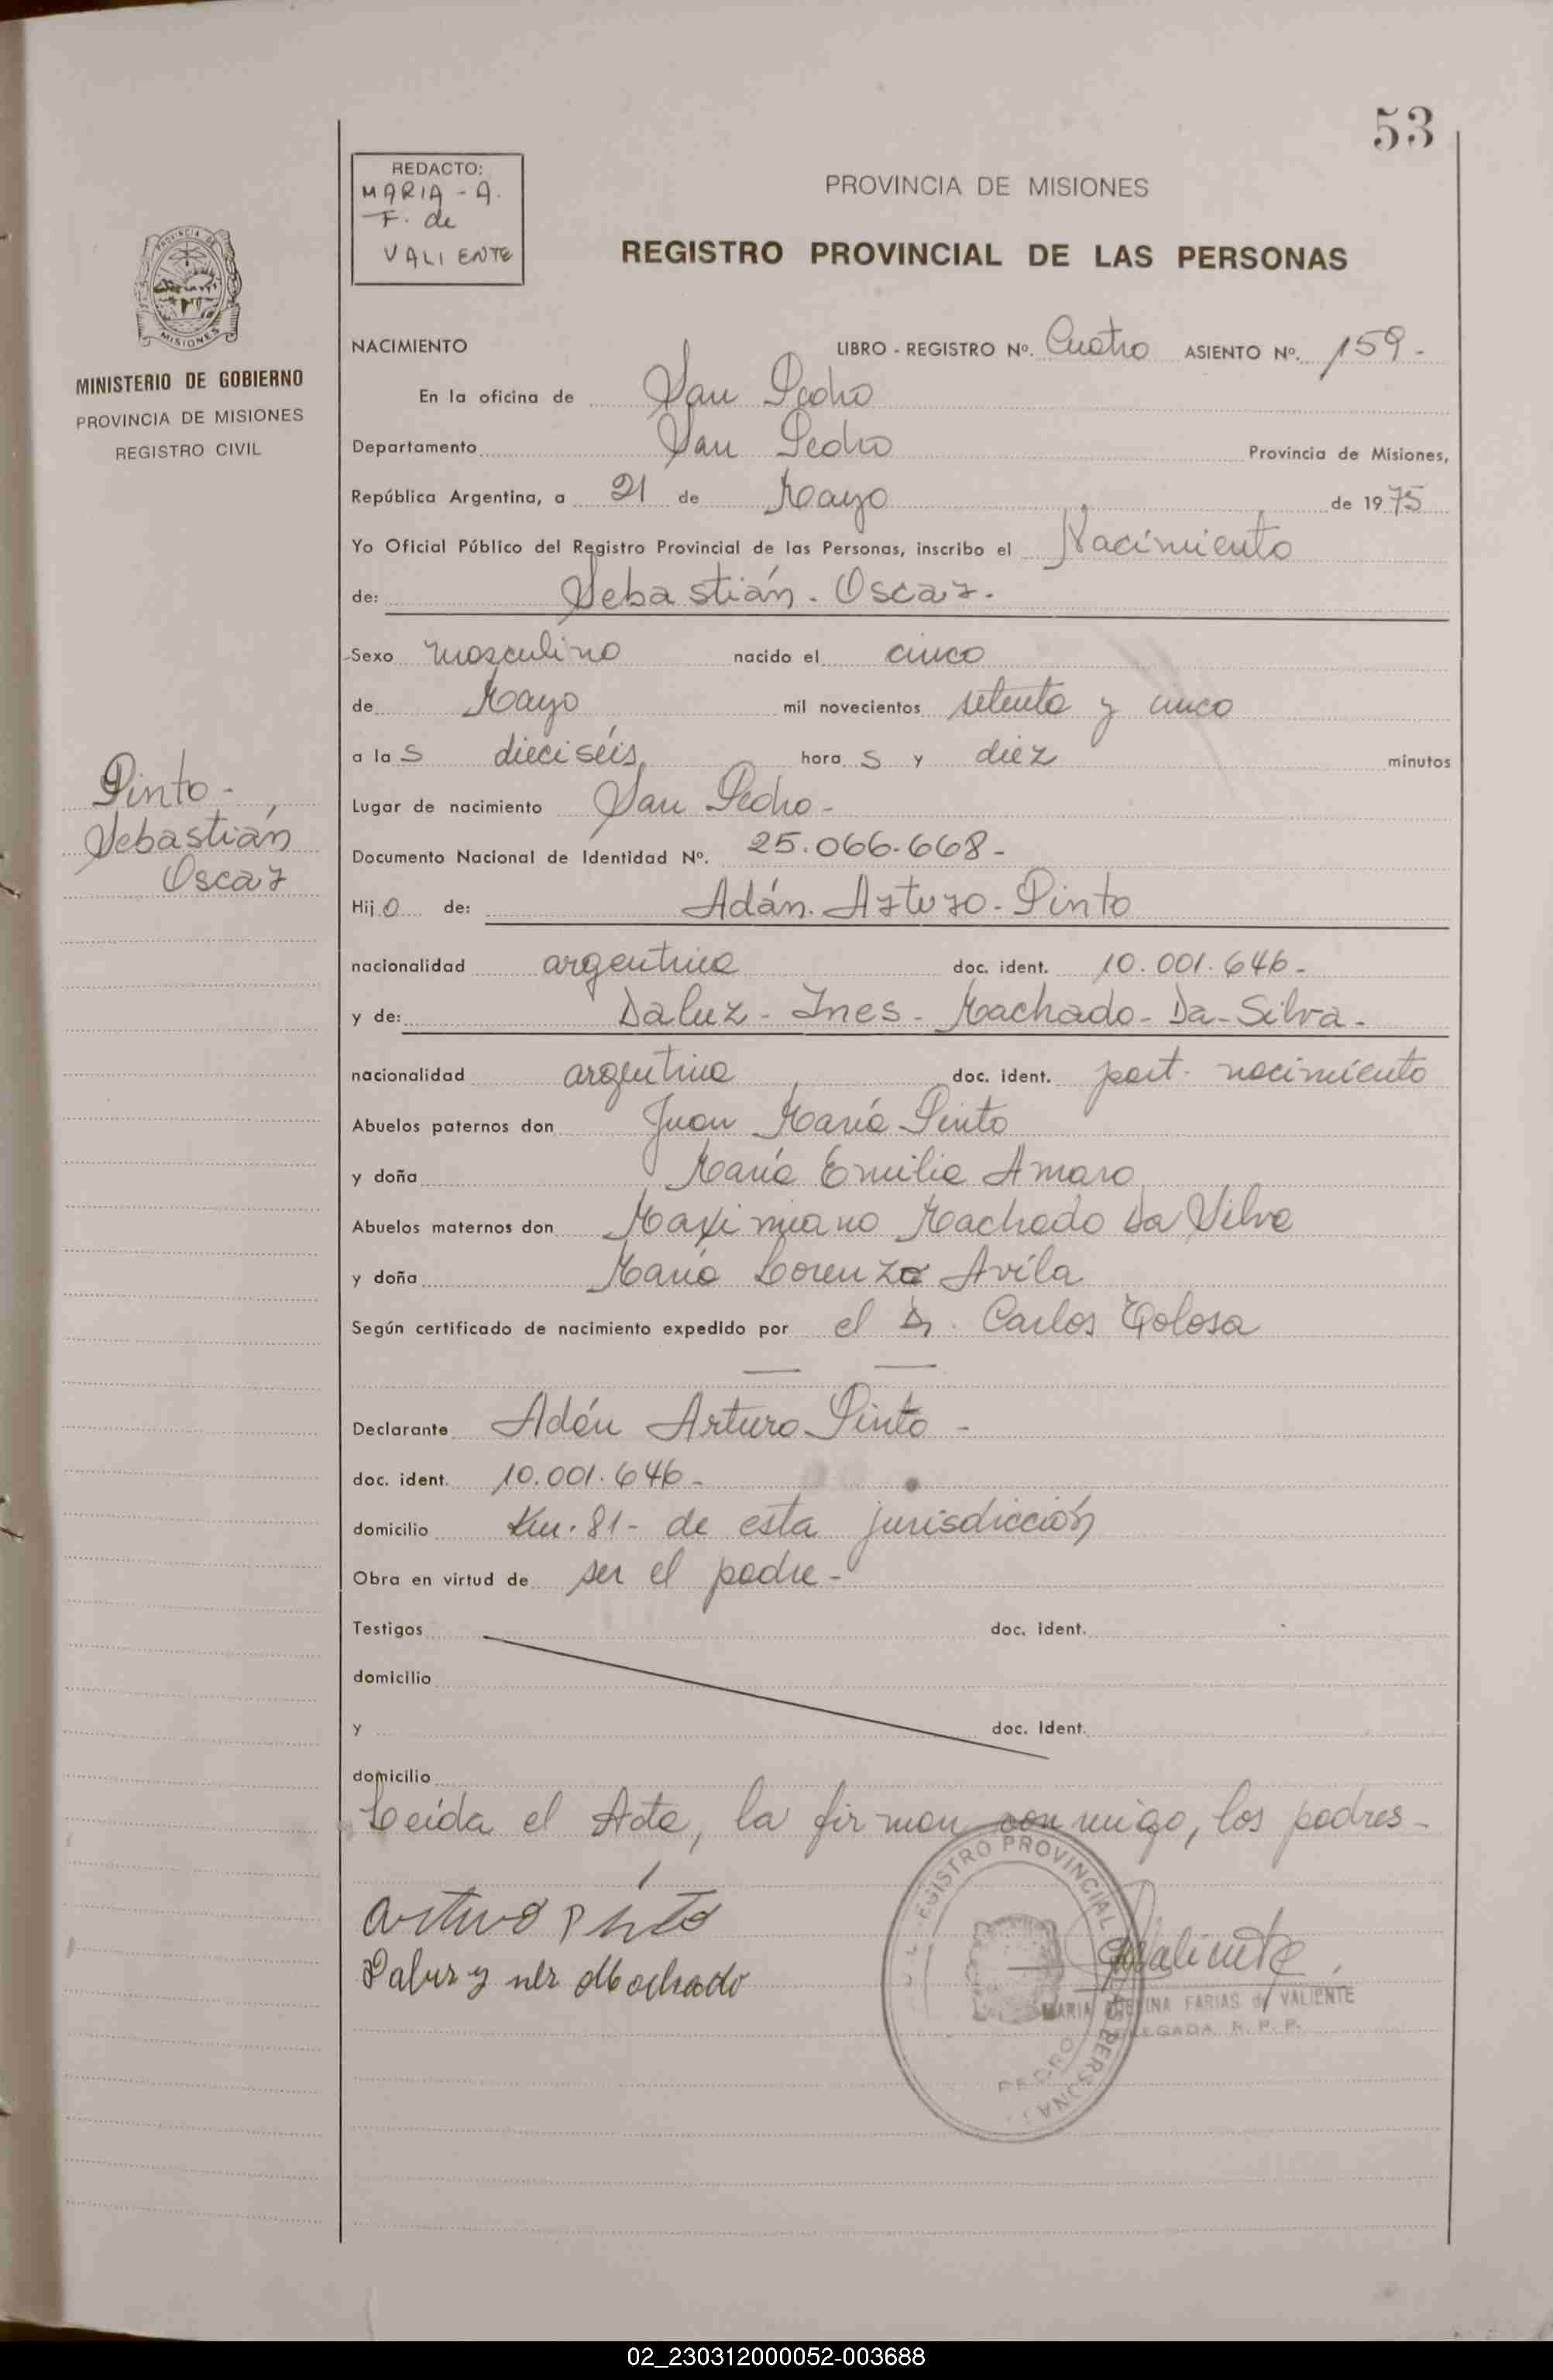 53
REDACTO:
MARIA - A.
F. de
VALIENTE
PROVINCIA DE MISIONES
REGISTRO PROVINCIAL DE LAS PERSONAS
PROVINCIA DE
MISIONES
MINISTERIO DE GOBIERNO
PROVINCIA DE MISIONES
REGISTRO CIVIL
NACIMIENTO LIBRO - REGISTRO Nº. Cuatro ASIENTO Nº. 159 -
En la oficina de San Pedro
Departamento San Pedro Provincia de Misiones,
República Argentina, a 21 de Mayo de 1975
Yo Oficial Público del Registro Provincial de las Personas, inscribo el Nacimiento
de: Sebastián - Oscar.
Sexo masculino nacido el cinco
de Mayo mil novecientos setenta y cinco
a la s dieciséis, hora s y diez minutos
Pinto -
Sebastián
Oscar
Lugar de nacimiento San Pedro -
Documento Nacional de Identidad Nº. 25.066.668 -
Hij o de: Adán - Arturo - Pinto
nacionalidad argentina doc. ident. 10.001.646 -
y de: Daluz - Ines - Machado - Da - Silva -
nacionalidad argentina doc. ident. part. nacimiento
Abuelos paternos don Juan María Pinto
y doña María Emilia Amaro
Abuelos maternos don Maximiano Machado Da Silva
y doña María Lorenza Avila
Según certificado de nacimiento expedido por el Dr. Carlos Tolosa
Declarante Adán Arturo Pinto -
doc. ident. 10.001.646 -
domicilio Km. 81 - de esta jurisdicción
Obra en virtud de ser el padre -
Testigos doc. ident.
domicilio
y doc. Ident.
domicilio
Leída el Acta, la firman conmigo, los padres -
arturo Pinto
Machado
Valiente
REGISTRO PROVINCIAL PERSONAS
PEDRO
MARIA FARIAS de VALIENTE
DELEGADA R. P. P.
02_230312000052-003688